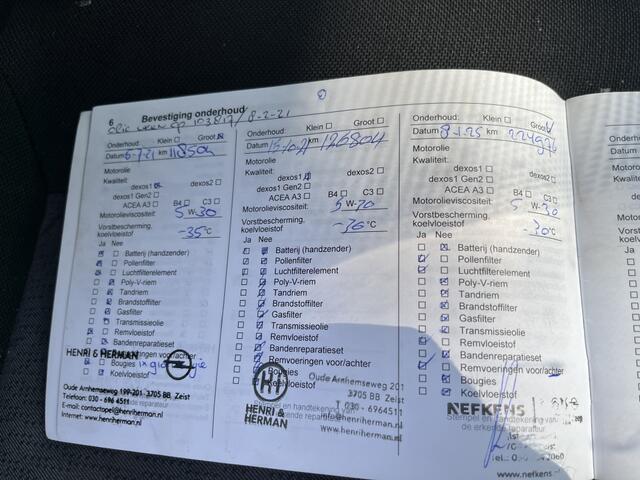 6 Bevestiging onderhoud
op 103817/ 8-2-21
Onderhoud: Klein Groot
Datum 6-7-21 km 118504
Motorolie
Kwaliteit:
dexos1 dexos2
dexos1 Gen2
ACEA A3 B4 C3
Motorolieviscositeit:
5 W-30
Vorstbescherming,
koelvloeistof -35°C
Ja Nee
Batterij (handzender)
Pollenfilter
Luchtfilterelement
Poly-V-riem
Tandriem
Brandstoffilter
Gasfilter
Transmissieolie
Remvloeistof
Bandenreparatieset
Remvoeringen voor/achter
Bougies
Koelvloeistof
HENRI & HERMAN
Oude Arnhemseweg 199-201 3705 BB Zeist
Telefoon: 030 - 696 4511
E-mail: contactopel@henriherman.nl
Internet: www.henriherman.nl
Onderhoud: Klein Groot
Datum 15-10-21 km 126804
Motorolie
Kwaliteit:
dexos1 dexos2
dexos1 Gen2
ACEA A3 B4 C3
Motorolieviscositeit:
5 W-20
Vorstbescherming,
koelvloeistof -36°C
Ja Nee
Batterij (handzender)
Pollenfilter
Luchtfilterelement
Poly-V-riem
Tandriem
Brandstoffilter
Gasfilter
Transmissieolie
Remvloeistof
Bandenreparatieset
Remvoeringen voor/achter
Bougies
Koelvloeistof
Oude Arnhemseweg 201
3705 BB Zeist
T 030 - 6964511
info@henriherman.nl
www.henriherman.nl
HENRI &
HERMAN
Onderhoud: Klein Groot
Datum 8-1-25 km
Motorolie
Kwaliteit:
dexos1 dexos2
dexos1 Gen2
ACEA A3 B4 C3
Motorolieviscositeit:
5 W-30
Vorstbescherming,
koelvloeistof -30°C
Ja Nee
Batterij (handzender)
Pollenfilter
Luchtfilterelement
Poly-V-riem
Tandriem
Brandstoffilter
Gasfilter
Transmissieolie
Remvloeistof
Bandenreparatieset
Remvoeringen voor/achter
Bougies
Koelvloeistof
NEFKENS
Stempel en handtekening van
de erkende reparateur
www.nefkens